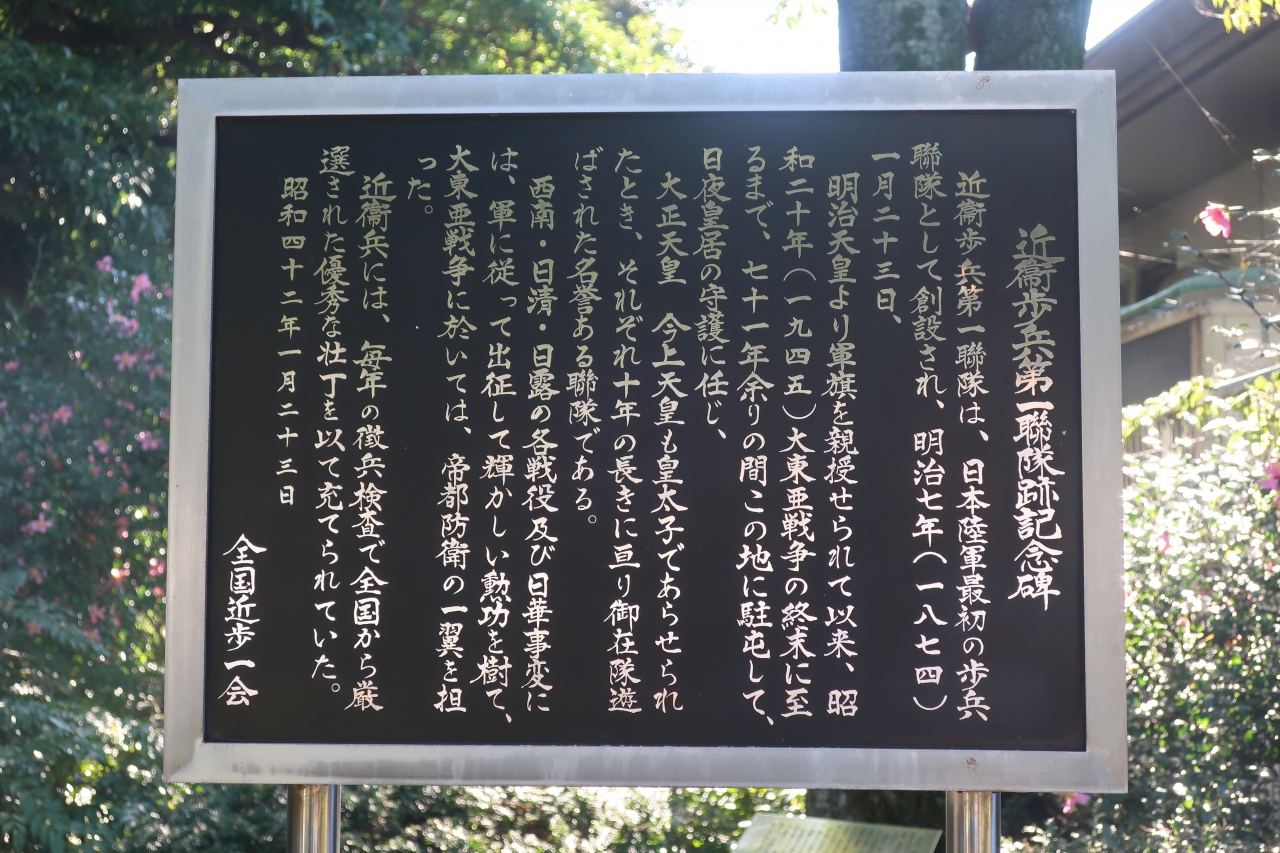 近衞歩兵第一聯隊跡記念碑
近衞歩兵第一聯隊は、日本陸軍最初の歩兵
聯隊として創設され、明治七年(一八七四)
一月二十三日、
明治天皇より軍旗を親授せられて以来、昭
和二十年(一九四五)大東亜戦争の終末に至
るまで、七十一年余りの間この地に駐屯して、
日夜皇居の守護に任じ、
大正天皇 今上天皇も皇太子であらせられ
たとき、それぞれ十年の長きに亘り御在隊遊
ばされた名誉ある聯隊である。
西南・日清・日露の各戦役及び日華事変に
は、軍に従って出征して輝かしい勳功を樹て、
大東亜戦争に於いては、帝都防衛の一翼を担
った。
近衞兵には、毎年の徴兵検査で全国から厳
選された優秀な壮丁を以て充てられていた。
昭和四十二年一月二十三日
全国近歩一会